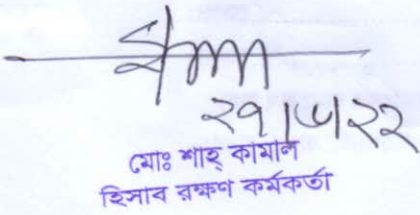 ২৭/৬/২২
মোঃ শাহ্ কামাল
হিসাব রক্ষণ কর্মকর্তা